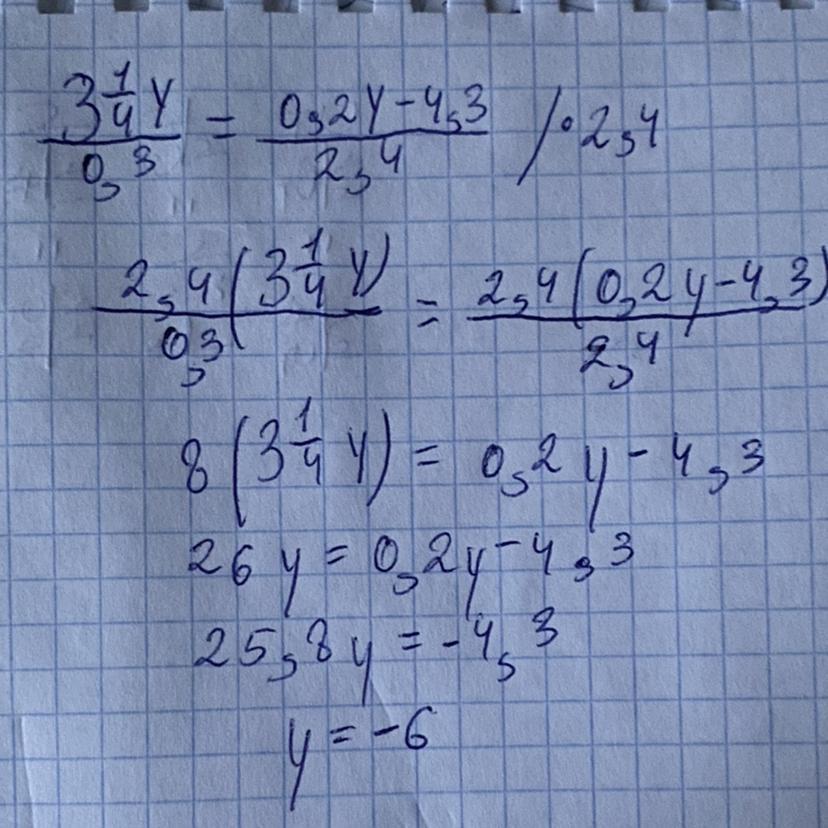 3 1/4 y / 0,3 = (0,2y - 4,3) / 2,4 /·2,4
2,4(3 1/4 y) / 0,3 = 2,4(0,2y - 4,3) / 2,4
8(3 1/4 y) = 0,2y - 4,3
26y = 0,2y - 4,3
25,8y = -4,3
y = -6